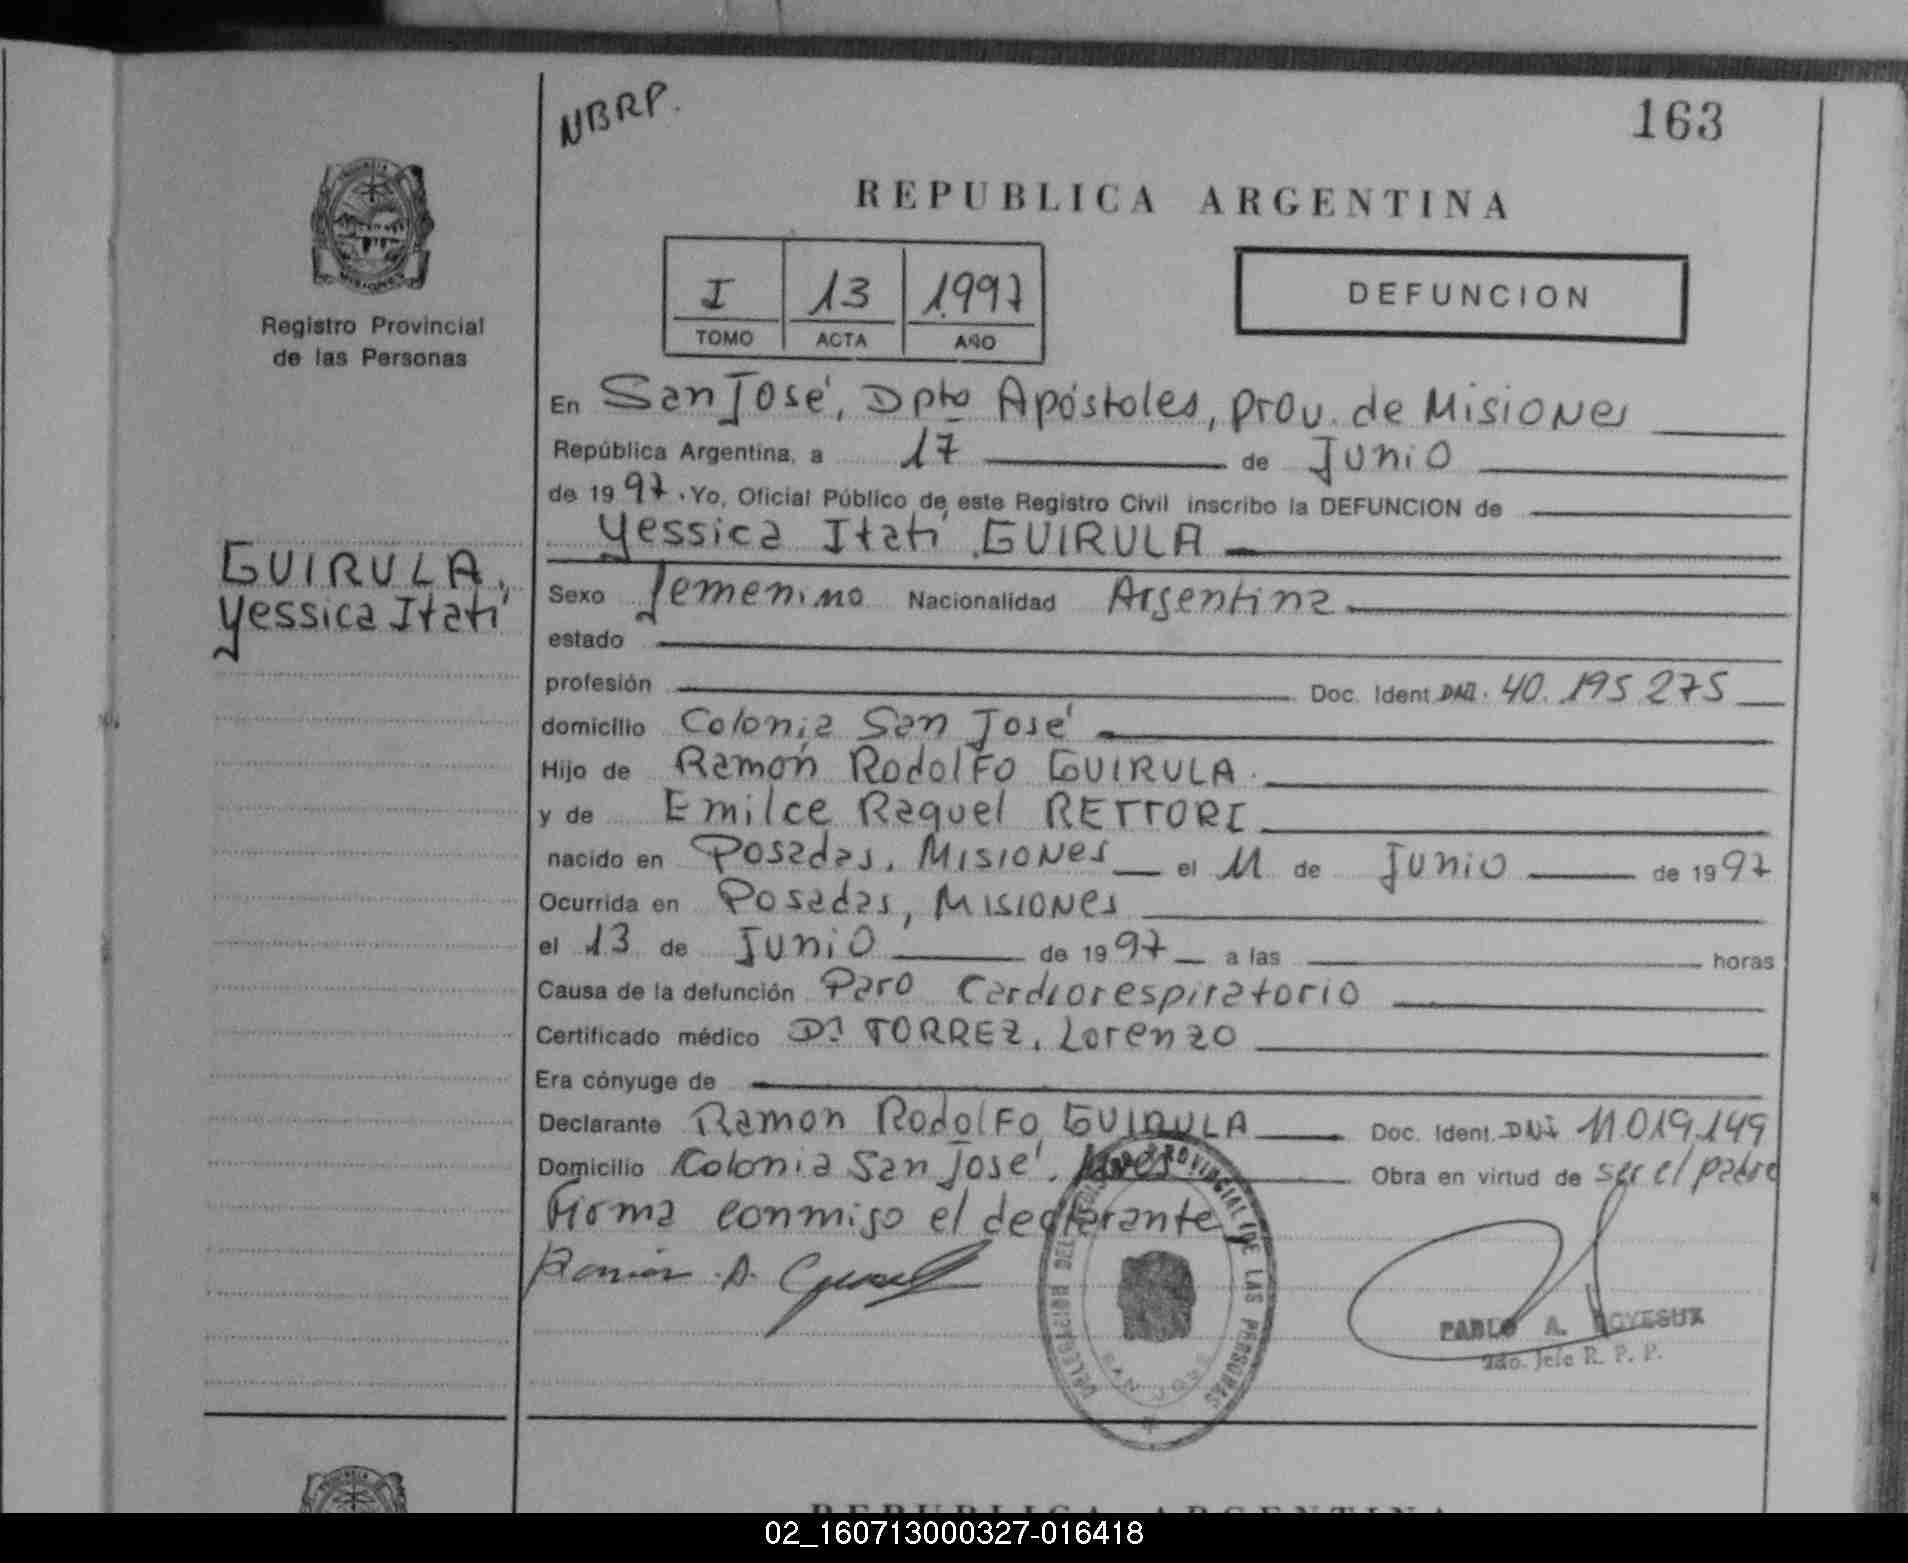 NBRP.
163
REPUBLICA ARGENTINA
Registro Provincial
de las Personas
I 13 1997
TOMO ACTA AÑO
DEFUNCION
En San José, Dpto Apóstoles, prov. de Misiones
República Argentina, a 17 de Junio
de 1997. Yo, Oficial Público de este Registro Civil inscribo la DEFUNCION de
Yessica Itatí GUIRULA
GUIRULA,
Yessica Itatí
Sexo femenino Nacionalidad Argentina
estado
profesión Doc. Ident. DNI. 40.195.275
domicilio Colonia San José
Hijo de Ramón Rodolfo GUIRULA.
y de Emilce Raquel RETTORI
nacido en Posadas, Misiones el 11 de Junio de 1997
Ocurrida en Posadas, Misiones
el 13 de Junio de 1997 a las horas
Causa de la defunción Paro Cardiorespiratorio
Certificado médico Dr. TORREZ, Lorenzo
Era cónyuge de
Declarante Ramon Rodolfo GUIRULA Doc. Ident. DNI 11.019.149
Domicilio Colonia San José, Obra en virtud de ser el padre
Firma conmigo el declarante
PROVINCIAL DE LAS PERSONAS
SAN JOSE
PABLO A.
2do. Jefe R. P. P.
REPUBLICA ARGENTINA
02_160713000327-016418